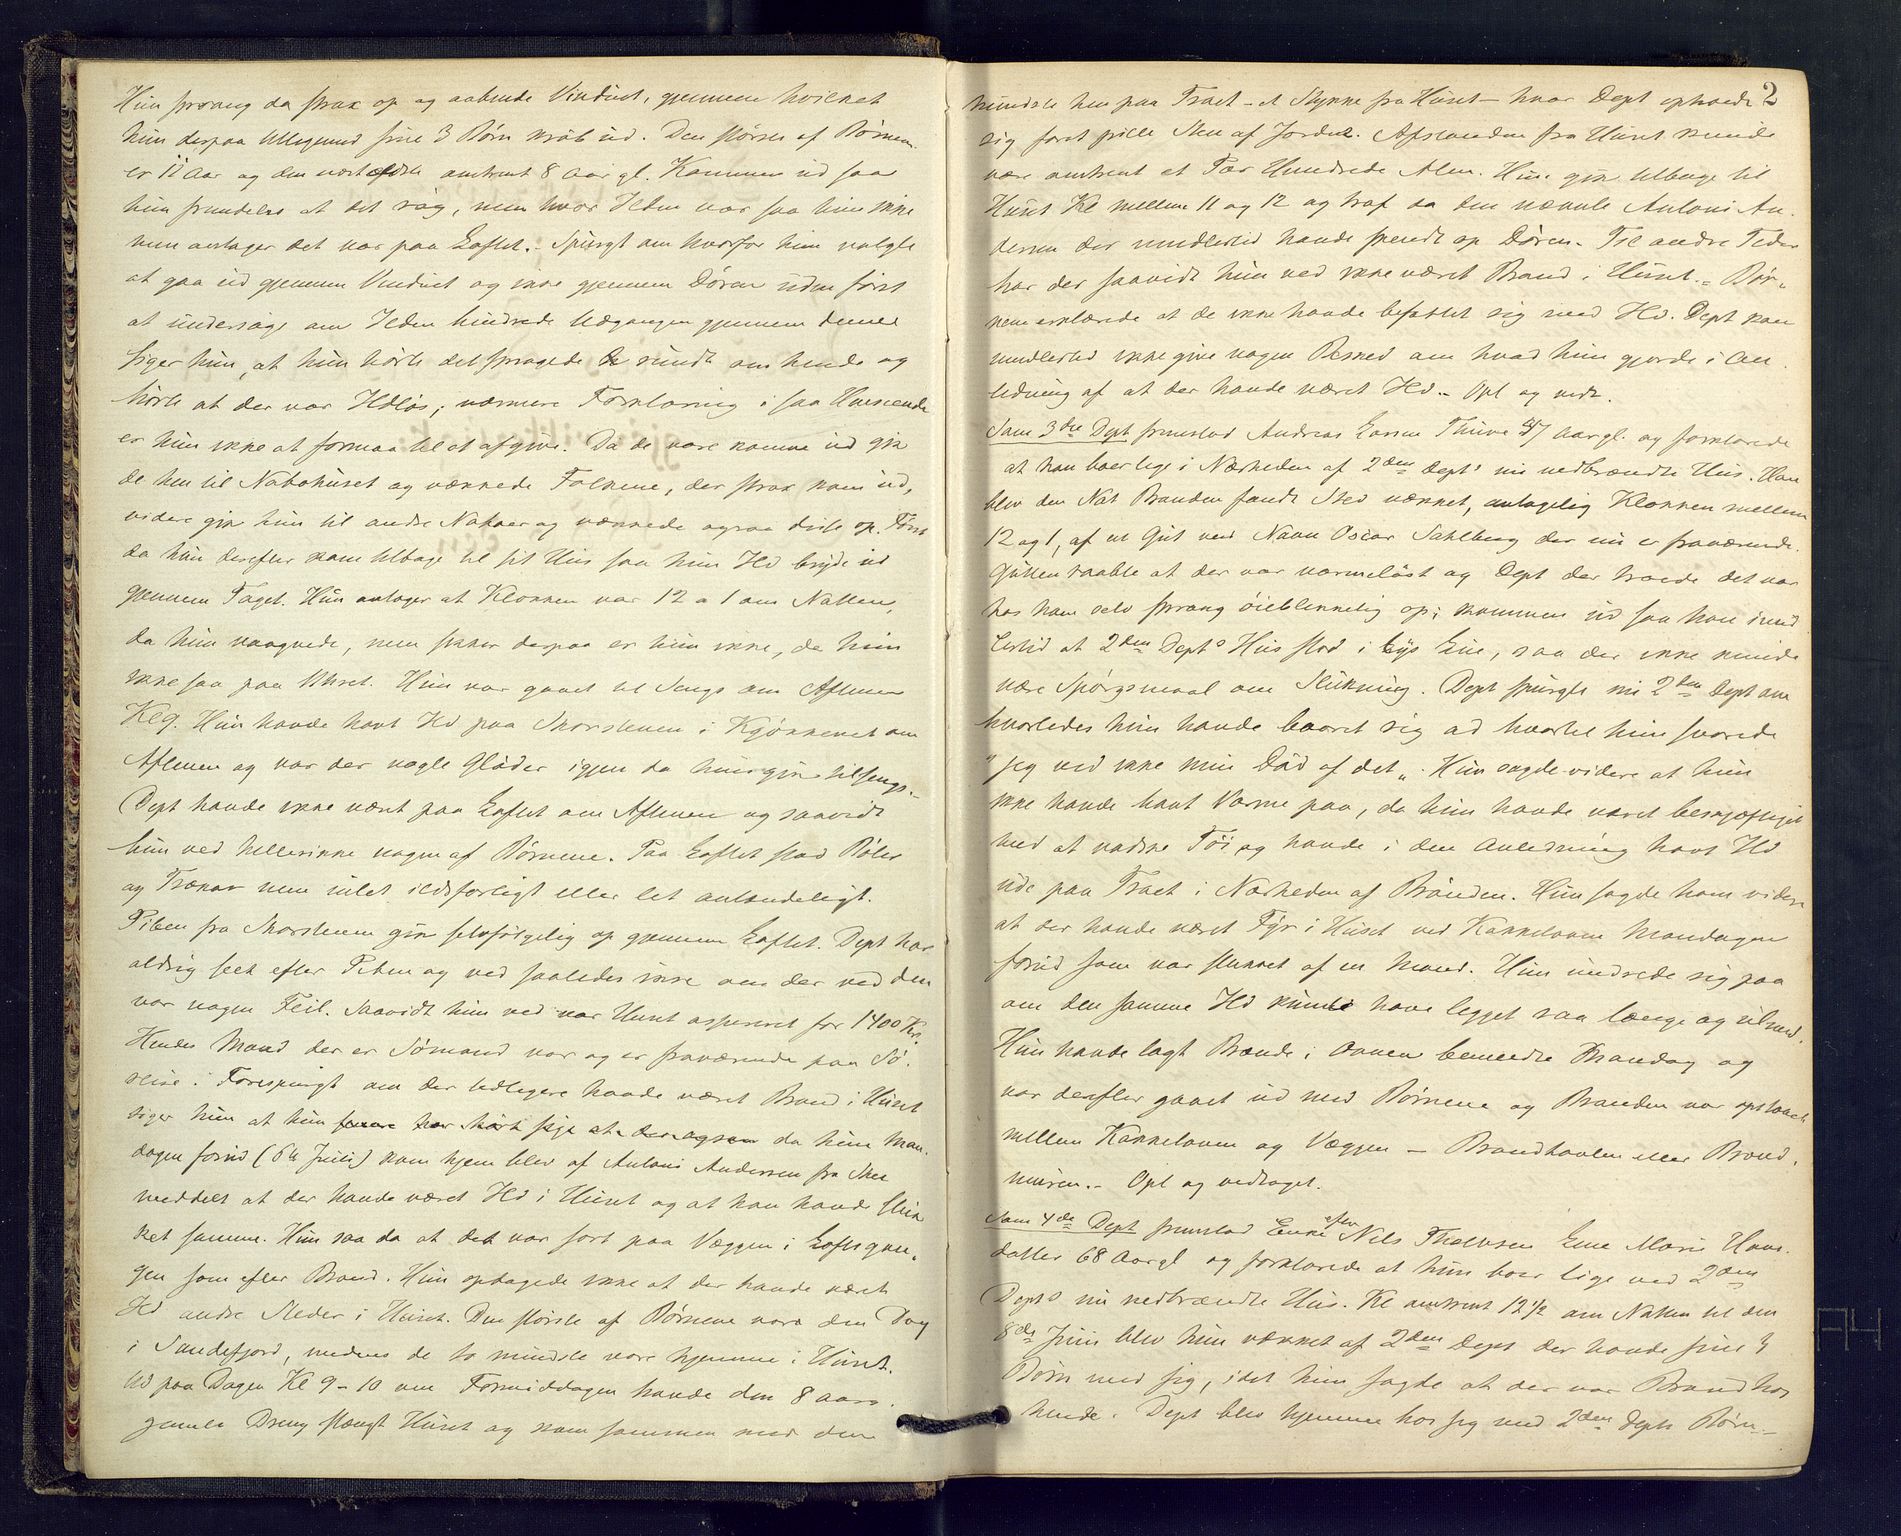 Hun sprang da strax op og aabnede Vinduet, gjennem hvilket
hun derpaa tilligemed sine 3 Børn krøb ud. Den største af Børnene
er 11 Aar og den næstældste omtrent 8 Aar gl. Kommen ud saa
hun fremdeles at det røg, men hvor Ilden var saa hun ikke
men antager det var paa Loftet. Spurgt om hvorfor hun valgte
at gaa ud gjennem Vinduet og ikke gjennem Døren uden først
at undersøge om Ilden hindrede Udgangen gjennem denne
siger hun, at hun hørte det spragede rundt om hende og
hørte at der var Ildløs; nærmere Forklaring i saa Henseende
er hun ikke at formaa til at afgive. Da de vare komne ud gik
de hen til Nabohuset og vækkede Folkene, der strax kom ud,
videre gik hun til andre Naboer og vækkede ogsaa disse op. Først
da hun derefter kom tilbage til sit Hus saa hun Ild bryde ud
gjennem Taget. Hun antager at Klokken var 12 a 1 om Natten,
da hun vaagnede, men sikker derpaa er hun ikke, da hun
ikke saa paa Uhret. Hun var gaaet til Sengs om Aftenen
Kl 9. Hun havde havt Ild paa Skorstenen i Kjøkkenet om
Aftenen og var der nogle Gløder igjen da hun gik tilsengs.
Dept havde ikke været paa Loftet om Aftenen og saavidt
hun ved hellerikke nogen af Børnene. Paa Loftet stod
og men intet ildsfarligt eller let antændeligt.
Piben fra Skorstenen gik selvfølgelig op gjennem Loftet. Dept har
aldrig seet efter Piben og ved saaledes ikke om der ved den
var nogen Feil. Saavidt hun ved var Huset assureret for 1400 Kr.
Hendes Mand der er Sømand var og er fraværende paa Sø-
reise. Forespurgt om der tidligere havde været Brand i Huset
siger hun at da hun Man-
dagen forud (6te Juli) kom hjem blev af Antoni Andersen fra
meddelt at der havde været Ild i Huset og at han havde sluk
ket samme. Hun saa da at det var sort paa Væggen i Loftsgan-
gen som efter Brand. Hun opdagede ikke at der havde været
Ild andre Steder i Huset. Den største af Børnene var den Dag
i Sandefjord, medens de to mindste vare hjemme i Huset.
Ud paa Dagen Kl 9-10 om Formiddagen havde den 8 aars
gamle Dreng stængt Huset og kom sammen med den
2
mindste hen paa Traet - et Stykke fra Huset - hvor Dept opholdt
sig foret pille Sten af Jordet. Afstanden fra Huset kunde
være omtrent et Par Hundrede Alen. Hun gik tilbage til
Huset Kl mellem 11 og 12 og traf da den nævnte Antoni An-
dersen der imidlertid havde sprendt op Døren. Til andre Tider
har der saavidt hun ved ikke været Brand i Huset. - Bør-
nene erklærede at de ikke havde befattet sig med Ild. Dept kan
imidlertid ikke give nogen Besked om hvad hun gjorde i An
ledning af at der havde været Ild. - Opl og vedt.
Som 3die Dept fremstod Andreas Larsen Thuve 37 Aar gl. og forklarede
at han boer lige i Nærheden af 2den Depts nu nedbrændte Hus. Han
blev den Nat Branden fandt Sted vækket, antagelig Klokken mellem
12 og 1, af en Gut ved Navn Oscar Sahlberg der nu er fraværende.
Gutten raabte at der var varmeløst og Dept der troede det var
hos ham selv sprang øieblikkelig op; kommen ud saa han imid
lertid at 2den Depts Hus stod i lys Lue, saa der ikke kunde
være Spørgsmaal om Slukning. Dept spurgte nu 2den Dept om
hvorledes hun havde baaret sig ad hvortil hun svarede
"jeg ved ikke min Død af det". Hun sagde videre at hun
ikke havde havt Varme paa, da hun havde været beskjæftiget
med at vadske Tøi og havde i den Anledning havt Ild
ude paa Traet i Nærheden af Brønden. Hun sagde ham videre
at der havde været Fyr i Huset ved Kakkelovnen Mandagen
forud som var slukket af en Mand. Hun undrede sig paa
om den samme Ild kunde have ligget saa længe og ulmet.
Hun havde lagt Brænde i Ovnen bemeldte Mandag og
var derefter gaaet ud med Børnene og Branden var opstaaet
mellem Kakkelovnen og Væggen - Brandtavlen eller Brand-
muren. - Opl og vedtaget.
Som 4de Dept fremstod Enke efter Nils Tholvsen Lene Marie Hans-
datter 68 Aar gl og forklarede at hun boer lige ved 2den
Depts nu nedbrændte Hus. Kl omtrent 12½ om Natten til den
8de Juni blev hun vækket af 2den Dept der havde sine 3
Børn med sig, idet hun sagde at der var Brand hos
hende. Dept blev hjemme hos sig med 2den Depts Børn -